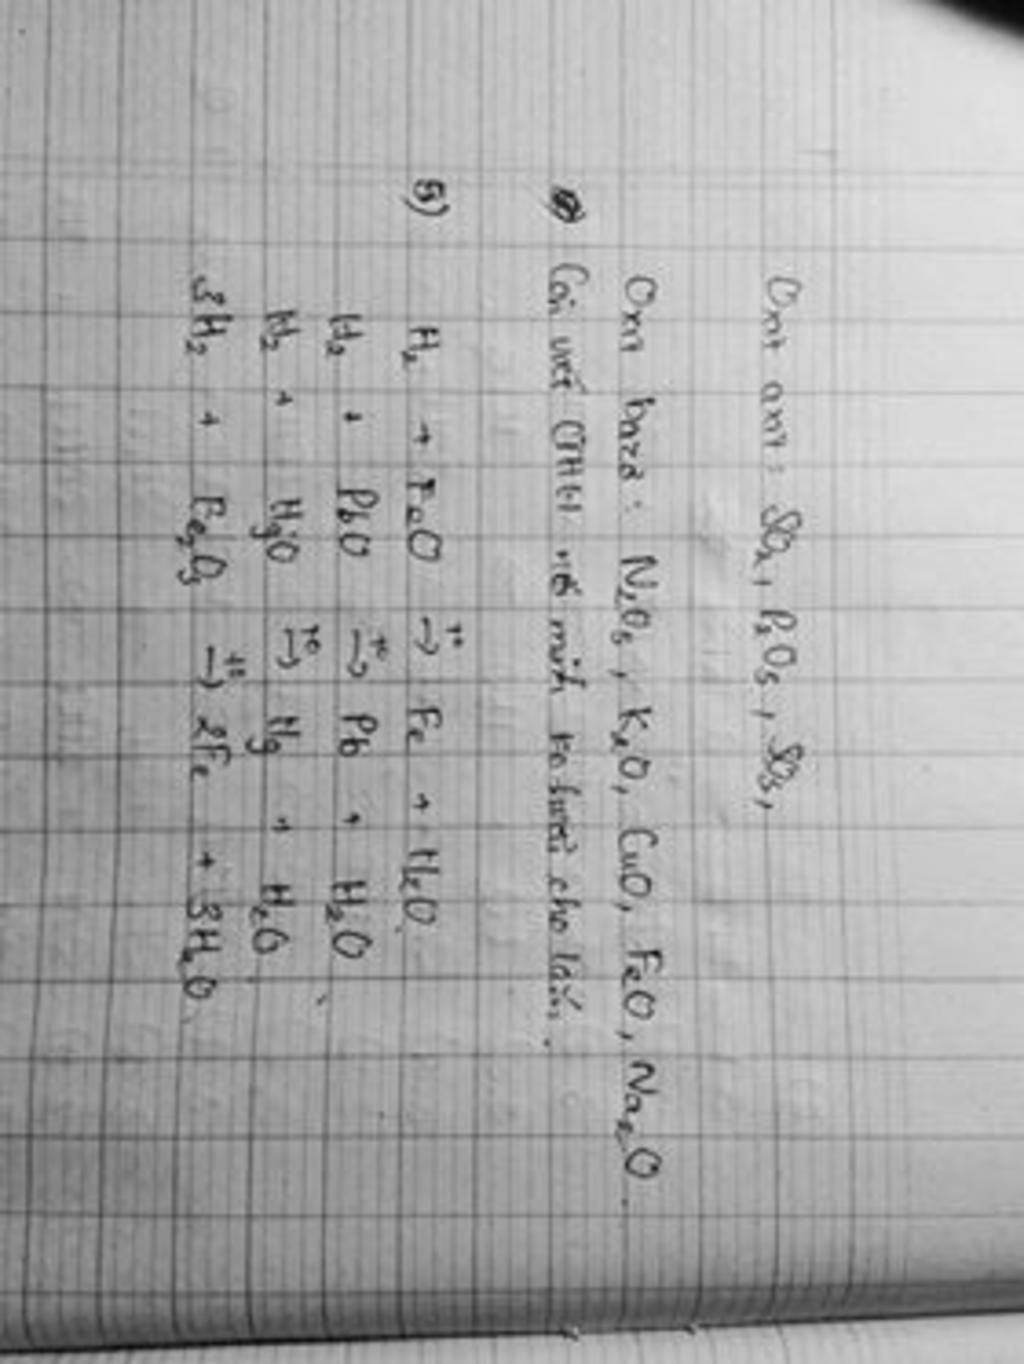 Oxit axit: SO2, P2O5, SO3,
Oxit bazơ: N2O5, K2O, CuO, FeO, Na2O.
Còn viết CTHH mình cho lắm.
5) H2 + FeO t°→ Fe + H2O.
H2 + PbO t°→ Pb + H2O
H2 + HgO t°→ Hg + H2O.
3H2 + Fe2O3 t°→ 2Fe + 3H2O.